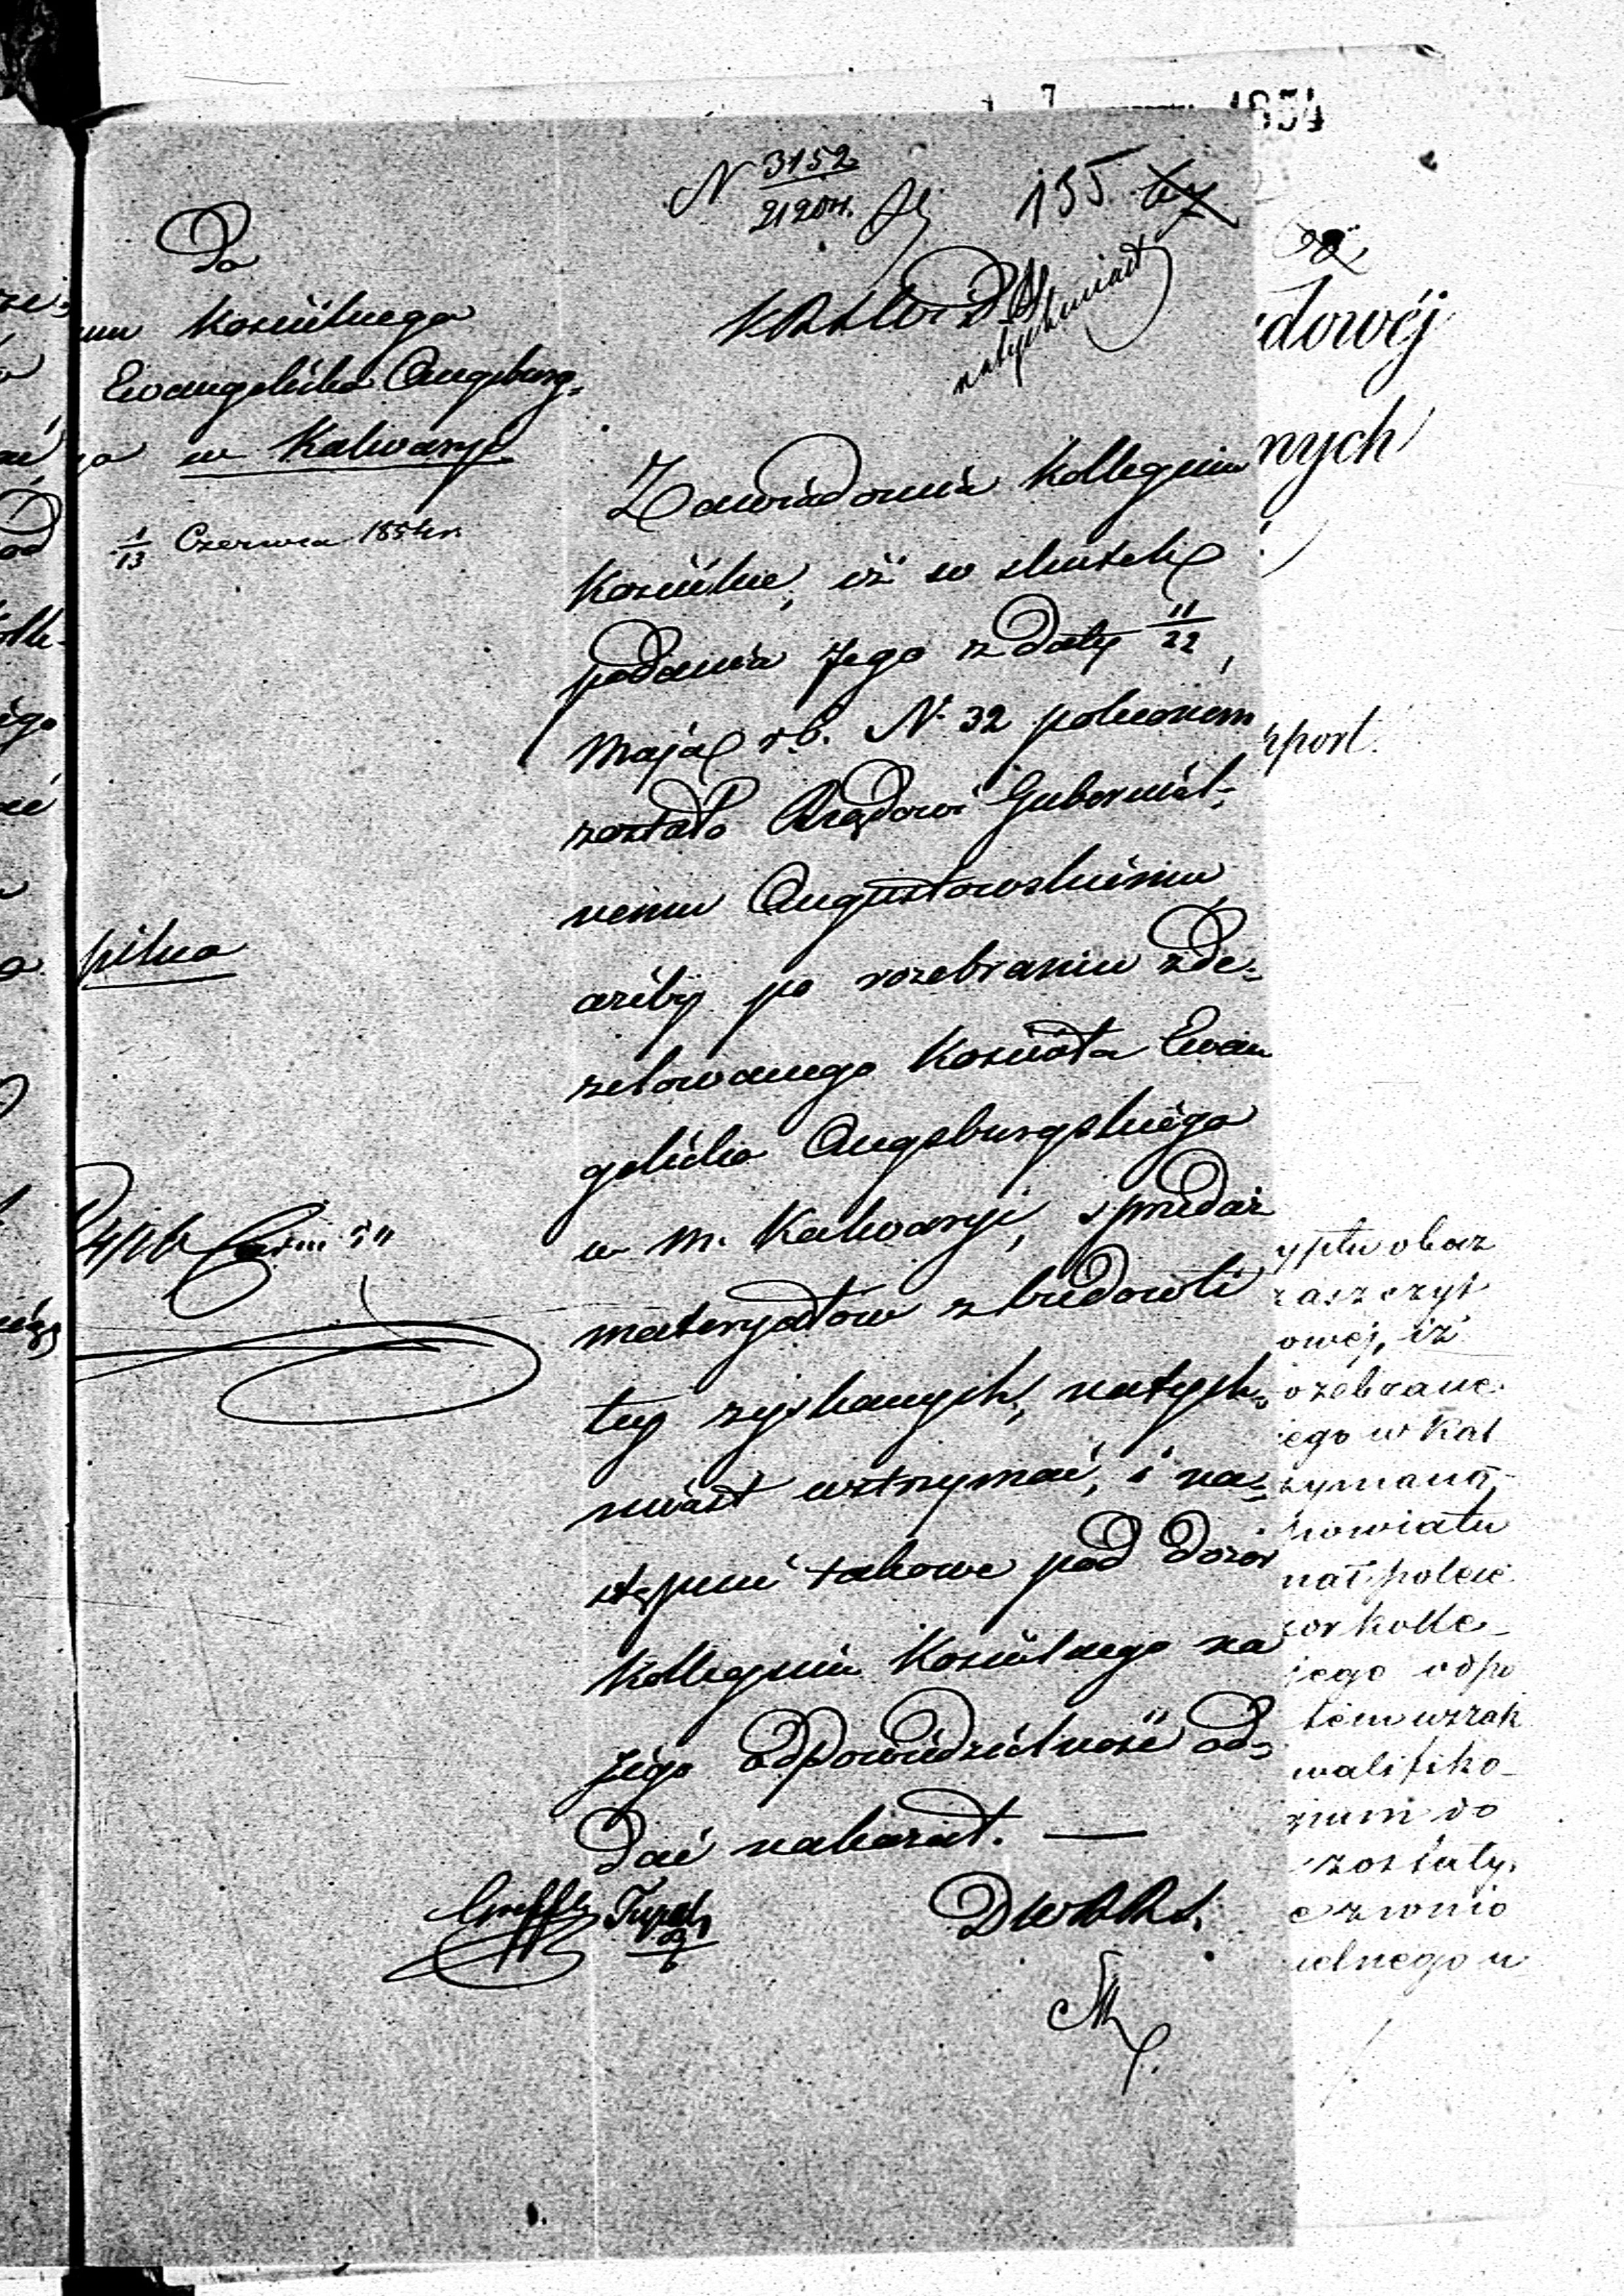 1854
N 3152/21204.
135
Do
natychmiast
um Kościelnego
K R S W i D
Ewangelicko Augsburg-
go w Kalwaryi
1/13 Czerwca 1854 r.
Zawiadamia Kollegium
Kościelne, iż w skutek
podania Jego z daty 11/22
Maja r. b. N. 32 poleconem
zostało Rządowi Gubernial-
nemu Augustowskiemu
ażeby po rozebraniu zde-
zelowanego Kościoła Ewan
gelicko Augsburgskiego
w m. Kalwaryi, sprzedaż
materyałów z budowli
tey zyskanych, natych-
miast wstrzymał, i na-
stępnie takowe pod dozór
Kollegium Kościelnego na
jégo odpowiedzialność od-
dać nakazał. —
D W R R S.
pilno
dowéj
nych
pport.
yptu obaz
zaszczyt
owej, iż
ozebrane
iego w Kal
zymaną
powiatu
nał polcić
zor kolle-
iego odpo
tém wszak
walifiko-
rium do
zostały,
czenio
ielnego w